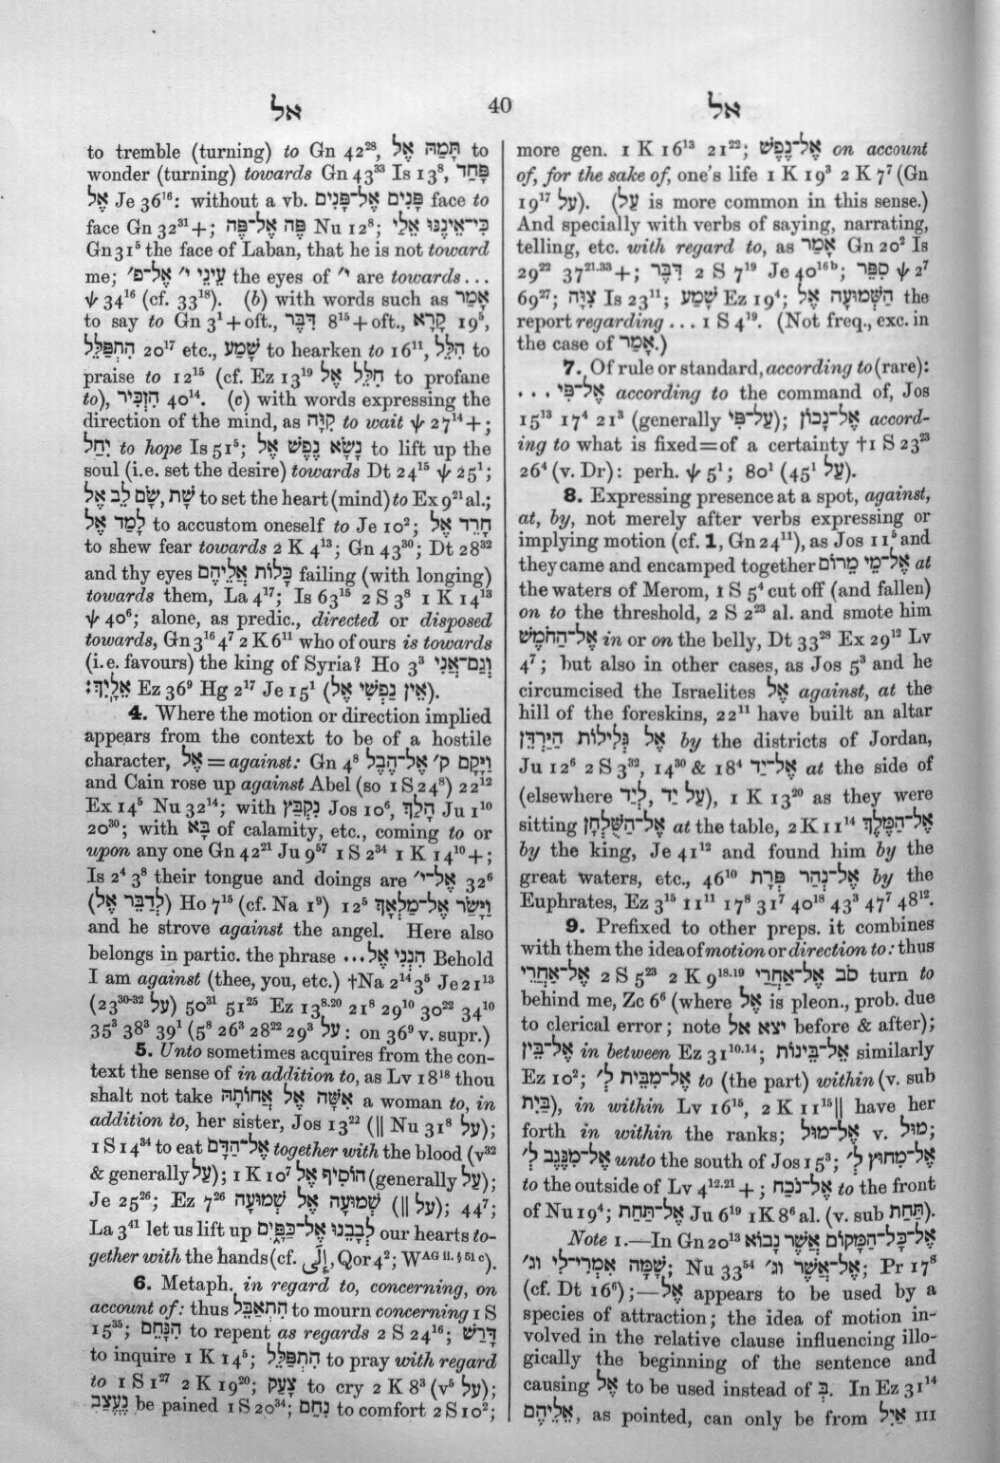 אל 40 אל
to tremble (turning) to Gn 42²⁸, תָּמַהּ אֶל to
wonder (turning) towards Gn 43³³ Is 13⁸, פָּחַד
אֶל Je 36¹⁶: without a vb. פָּנִים אֶל־פָּנִים face to
face Gn 32³¹+; פֶּה אֶל־פֶּה Nu 12⁸; כִּי־אֵינֶנּוּ אֵלַי
Gn 31⁵ the face of Laban, that he is not toward
me; עֵינֵי י׳ אֶל־פ׳ the eyes of י׳ are towards...
ψ 34¹⁶ (cf. 33¹⁸). (b) with words such as אָמַר
to say to Gn 3¹+oft., דִּבֶּר 8¹⁵+oft., קָרָא 19⁵,
הִתְפַּלֵּל 20¹⁷ etc., שָׁמַע to hearken to 16¹¹, הִלֵּל to
praise to 12¹⁵ (cf. Ez 13¹⁹ חִלֵּל אֶל to profane
to), הִזְכִּיר 40¹⁴. (c) with words expressing the
direction of the mind, as קִוָּה to wait ψ 27¹⁴+;
יִחֵל to hope Is 51⁵; נָשָׂא נֶפֶשׁ אֶל to lift up the
soul (i.e. set the desire) towards Dt 24¹⁵ ψ 25¹;
שָׁת, שָׂם לֵב אֶל to set the heart (mind) to Ex 9²¹ al.;
לָמַד אֶל to accustom oneself to Je 10²; חָרֵד אֶל
to shew fear towards 2 K 4¹³; Gn 43³⁰; Dt 28³²
and thy eyes כָּלוֹת אֲלֵיהֶם failing (with longing)
towards them, La 4¹⁷; Is 63¹⁵ 2 S 3⁸ 1 K 14¹³
ψ 40⁶; alone, as predic., directed or disposed
towards, Gn 3¹⁶ 4⁷ 2 K 6¹¹ who of ours is towards
(i.e. favours) the king of Syria? Ho 3³ וְגַם־אֲנִי
אֵלָיִךְ׃ Ez 36⁹ Hg 2¹⁷ Je 15¹ (אֵין נַפְשִׁי אֶל).
4. Where the motion or direction implied
appears from the context to be of a hostile
character, אֶל = against: Gn 4⁸ וַיָּקָם ק׳ אֶל־הֶבֶל
and Cain rose up against Abel (so 1 S 24⁸) 22¹²
Ex 14⁵ Nu 32¹⁴; with נִקְבַּץ Jos 10⁶, הָלַךְ Ju 1¹⁰
20³⁰; with בָּא of calamity, etc., coming to or
upon any one Gn 42²¹ Ju 9⁵⁷ 1 S 2³⁴ 1 K 14¹⁰+;
Is 2⁴ 3⁸ their tongue and doings are אֶל־י׳ 32⁶
(לְדַבֵּר אֶל) Ho 7¹⁵ (cf. Na 1⁹) 12⁵ וַיָּשַׂר אֶל־מַלְאָךְ
and he strove against the angel. Here also
belongs in partic. the phrase הִנְנִי אֶל... Behold
I am against (thee, you, etc.) †Na 2¹⁴ 3⁵ Je 21¹³
(23³⁰⁻³² עַל) 50³¹ 51²⁵ Ez 13⁸·²⁰ 21⁸ 29¹⁰ 30²² 34¹⁰
35³ 38³ 39¹ (5⁸ 26³ 28²² 29³ עַל: on 36⁹ v. supr.)
5. Unto sometimes acquires from the con-
text the sense of in addition to, as Lv 18¹⁸ thou
shalt not take אִשָּׁה אֶל אֲחוֹתָהּ a woman to, in
addition to, her sister, Jos 13²² (|| Nu 31⁸ עַל);
1 S 14³⁴ to eat אֶל־הַדָּם together with the blood (v³²
& generally עַל); 1 K 10⁷ הוֹסִיף אֶל (generally עַל);
Je 25²⁶; Ez 7²⁶ שְׁמוּעָה אֶל שְׁמוּעָה (|| עַל); 44⁷;
La 3⁴¹ let us lift up לְבָבֵנוּ אֶל־כַּפָּיִם our hearts to-
gether with the hands (cf. إِلَى, Qor 4²; W^AG ii. § 51 c).
6. Metaph. in regard to, concerning, on
account of: thus הִתְאַבֵּל to mourn concerning 1 S
15³⁵; הִנָּחֵם to repent as regards 2 S 24¹⁶; דָּרַשׁ
to inquire 1 K 14⁵; הִתְפַּלֵּל to pray with regard
to 1 S 1²⁷ 2 K 19²⁰; צָעַק to cry 2 K 8³ (v⁵ עַל);
נֶעֱצַב be pained 1 S 20³⁴; נִחַם to comfort 2 S 10²;
more gen. 1 K 16¹³ 21²²; אֶל־נֶפֶשׁ on account
of, for the sake of, one's life 1 K 19³ 2 K 7⁷ (Gn
19¹⁷ עַל). (עַל is more common in this sense.)
And specially with verbs of saying, narrating,
telling, etc. with regard to, as אָמַר Gn 20² Is
29²² 37²¹·³³+; דִּבֶּר 2 S 7¹⁹ Je 40¹⁶ᵇ; סִפֵּר ψ 2⁷
69²⁷; צִוָּה Is 23¹¹; שָׁמַע Ez 19⁴; הַשְּׁמוּעָה אֶל the
report regarding ... 1 S 4¹⁹. (Not freq., exc. in
the case of אָמַר.)
7. Of rule or standard, according to (rare):
אֶל־פִּי ... according to the command of, Jos
15¹³ 17⁴ 21³ (generally עַל־פִּי); אֶל־נָכוֹן accord-
ing to what is fixed=of a certainty †1 S 23²³
26⁴ (v. Dr): perh. ψ 5¹; 80¹ (45¹ עַל).
8. Expressing presence at a spot, against,
at, by, not merely after verbs expressing or
implying motion (cf. 1, Gn 24¹¹), as Jos 11⁵ and
they came and encamped together אֶל־מֵי מֵרוֹם at
the waters of Merom, 1 S 5⁴ cut off (and fallen)
on to the threshold, 2 S 2²³ al. and smote him
אֶל־הַחֹמֶשׁ in or on the belly, Dt 33²⁸ Ex 29¹² Lv
4⁷; but also in other cases, as Jos 5³ and he
circumcised the Israelites אֶל against, at the
hill of the foreskins, 22¹¹ have built an altar
אֶל גְּלִילוֹת הַיַּרְדֵּן by the districts of Jordan,
Ju 12⁶ 2 S 3³², 14³⁰ & 18⁴ אֶל־יַד at the side of
(elsewhere עַל יַד, לְיַד), 1 K 13²⁰ as they were
sitting אֶל־הַשֻּׁלְחָן at the table, 2 K 11¹⁴ אֶל־הַמֶּלֶךְ
by the king, Je 41¹² and found him by the
great waters, etc., 46¹⁰ אֶל־נְהַר פְּרָת by the
Euphrates, Ez 3¹⁵ 11¹¹ 17⁸ 31⁷ 40¹⁸ 43³ 47⁷ 48¹².
9. Prefixed to other preps. it combines
with them the idea of motion or direction to: thus
אֶל־אַחֲרֵי 2 S 5²³ 2 K 9¹⁸·¹⁹ סֹב אֶל־אַחֲרַי turn to
behind me, Zc 6⁶ (where אֶל is pleon., prob. due
to clerical error; note יצא אל before & after);
אֶל־בֵּין in between Ez 31¹⁰·¹⁴; אֶל־בֵּינוֹת similarly
Ez 10²; אֶל־מִבֵּית לְ to (the part) within (v. sub
בַּיִת), in within Lv 16¹⁵, 2 K 11¹⁵|| have her
forth in within the ranks; אֶל־מוּל v. מוּל;
אֶל־מִנֶּגֶב לְ unto the south of Jos 15³; אֶל־מִחוּץ לְ
to the outside of Lv 4¹²·²¹+; אֶל־נֹכַח to the front
of Nu 19⁴; אֶל־תַּחַת Ju 6¹⁹ 1 K 8⁶ al. (v. sub תַּחַת).
Note 1.—In Gn 20¹³ אֶל־כָּל־הַמָּקוֹם אֲשֶׁר נָבוֹא
שָׁמָּה אִמְרִי־לִי וג׳; Nu 33⁵⁴ אֶל־אֲשֶׁר וג׳; Pr 17⁸
(cf. Dt 16⁶);—אֶל appears to be used by a
species of attraction; the idea of motion in-
volved in the relative clause influencing illo-
gically the beginning of the sentence and
causing אֶל to be used instead of בְּ. In Ez 31¹⁴
אֵלֵיהֶם, as pointed, can only be from אַיִל III